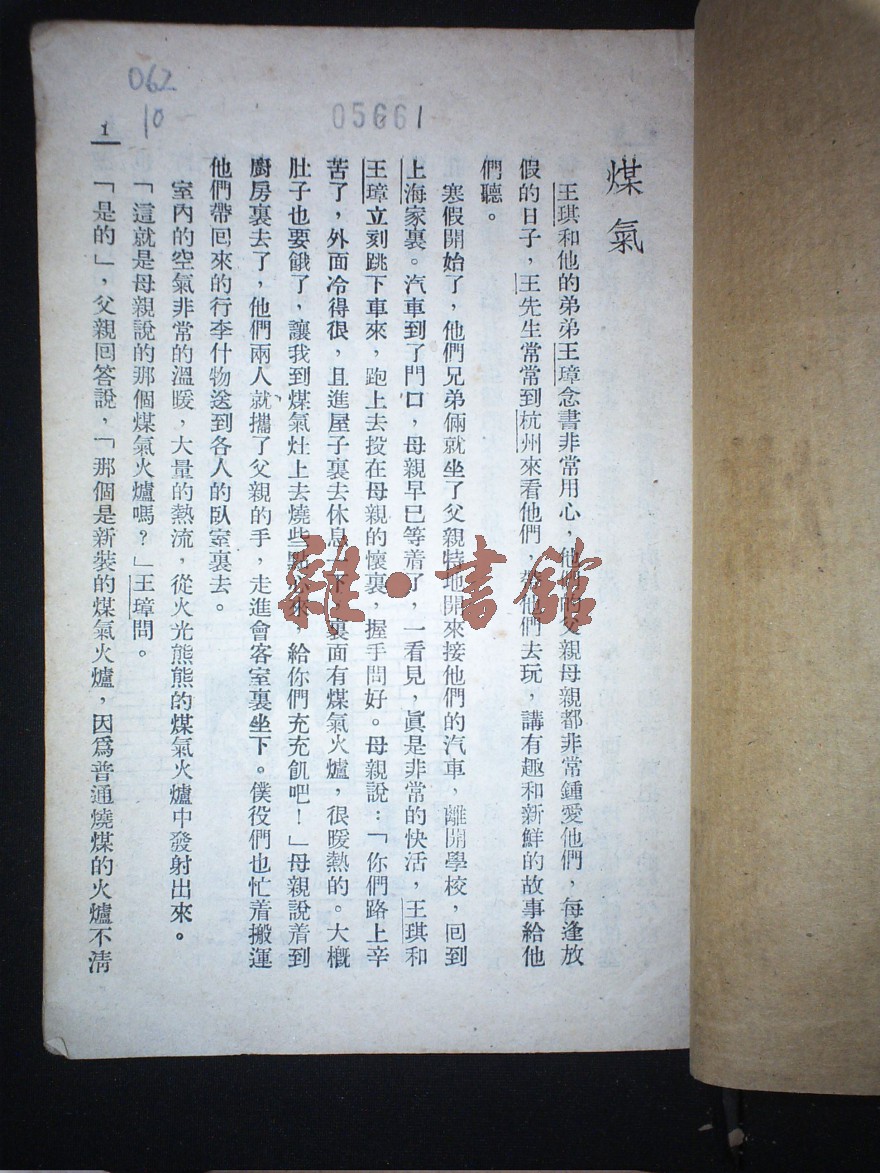 煤氣
王琪和他的弟弟王璋念書非常用心，他們的父親母親都非常鍾愛他們，每逢放
假的日子，王先生常常到杭州來看他們，帶他們去玩，講有趣和新鮮的故事給他
們聽。
寒假開始了，他們兄弟倆就坐了父親特地開來接他們的汽車，離開學校，回到
上海家裏。汽車到了門口，母親早已等着了，一看見，眞是非常的快活，王琪和
王璋立刻跳下車來，跑上去投在母親的懷裏，握手問好。母親說：「你們路上辛
苦了，外面冷得很，且進屋子裏去休息一下，裏面有煤氣火爐，很暖熱的。大槪
肚子也要餓了，讓我到煤氣灶上去燒些點心來，給你們充充飢吧！」母親說着到
廚房裏去了，他們兩人就攜了父親的手，走進會客室裏坐下。僕役們也忙着搬運
他們帶回來的行李什物送到各人的臥室裏去。
室內的空氣非常的溫暖，大量的熱流，從火光熊熊的煤氣火爐中發射出來。
「這就是母親說的那個煤氣火爐嗎？」王璋問。
「是的」，父親回答說，「那個是新裝的煤氣火爐，因爲普通燒煤的火爐不淸
1
062
10
05661
雜·書館